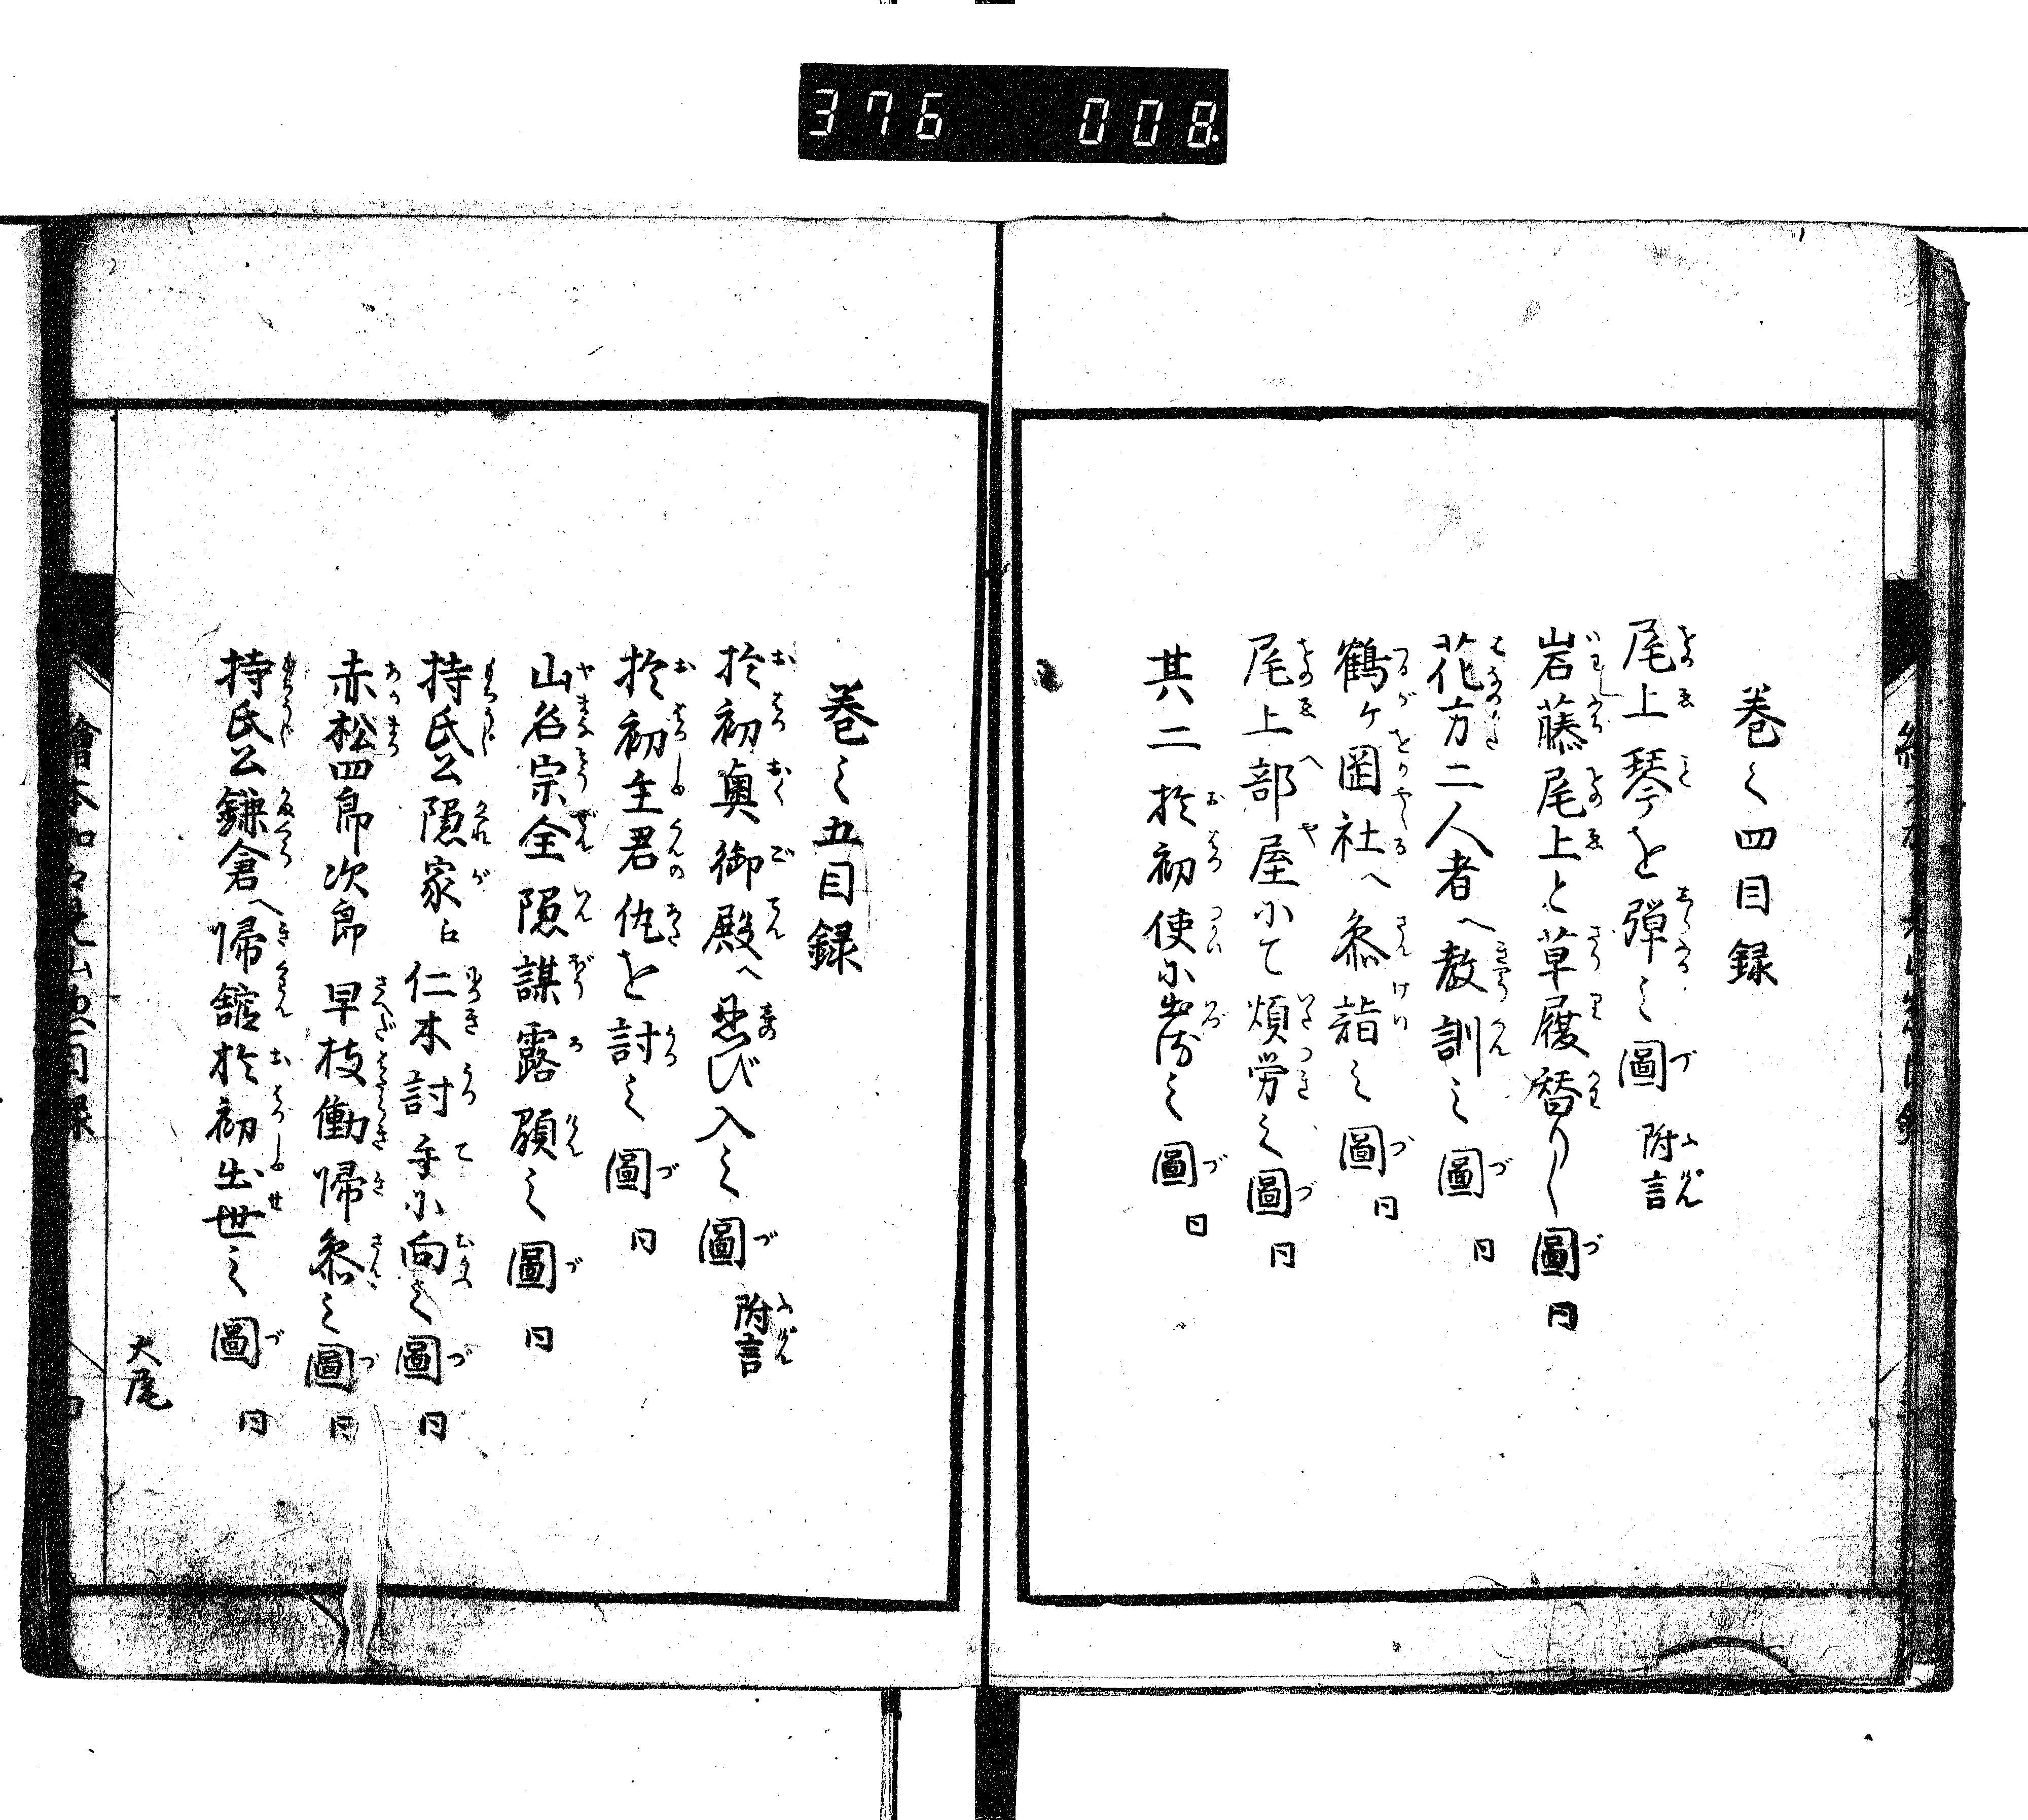 376 008
巻之四目録
尾上琴を弾之圖 附言
岩藤尾上と草履替りし圖 同
花方二人者へ教訓之圖 同
鶴ヶ岡社へ参詣之圖 同
尾上部屋にて煩労之圖 同
其二 於初使に出る之圖 同
巻之五目録
於初奥御殿へ忍び入之圖 附言
於初主君仇を討之圖 同
山名宗全隠謀露顕之圖 同
持氏公隠家に仁木討手に向之圖 同
赤松四郎次郎早枝働帰参之圖 同
持氏公鎌倉へ帰舘於初出世之圖 同
大尾